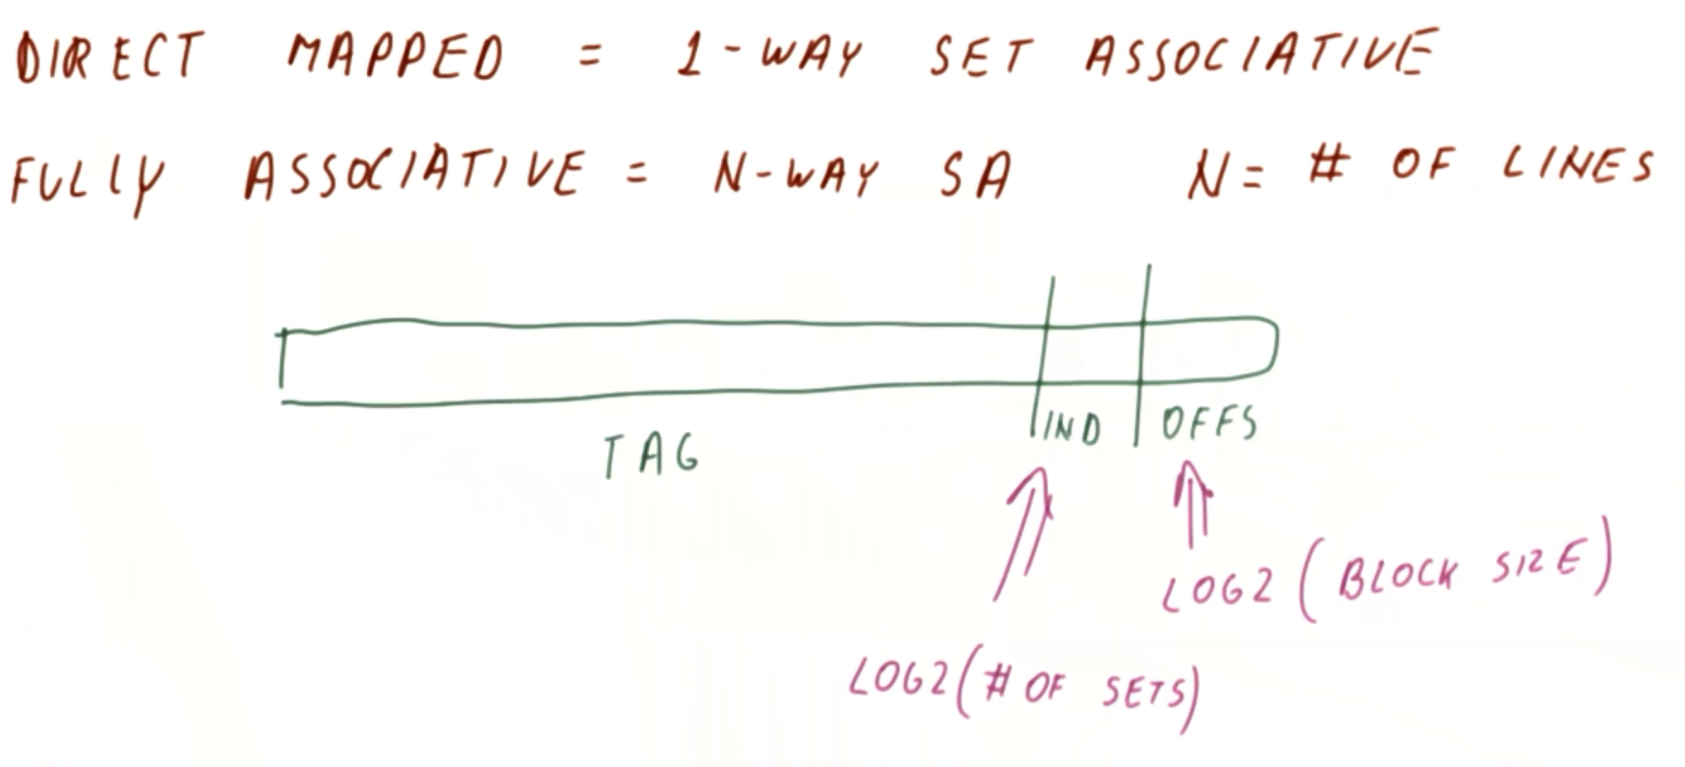 DIRECT MAPPED = 1-WAY SET ASSOCIATIVE
FULLY ASSOCIATIVE = N-WAY SA N= # OF LINES
TAG IND OFFS
LOG2 (BLOCK SIZE)
LOG2(# OF SETS)